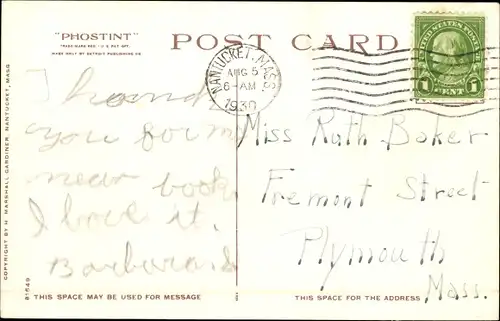 "PHOSTINT"
TRADE MARK REG. U.S. PAT. OFF.
MADE ONLY BY DETROIT PUBLISHING CO.
POST CARD
NANTUCKET, MASS.
AUG 5
6-AM
1930
UNITED STATES POSTAGE
1 CENT 1
I
you for
near book
I love it.
Barbara
Miss Ruth Baker
Fremont Street
Plymouth
Mass.
COPYRIGHT BY H. MARSHALL GARDINER, NANTUCKET, MASS
THIS SPACE MAY BE USED FOR MESSAGE
THIS SPACE FOR THE ADDRESS